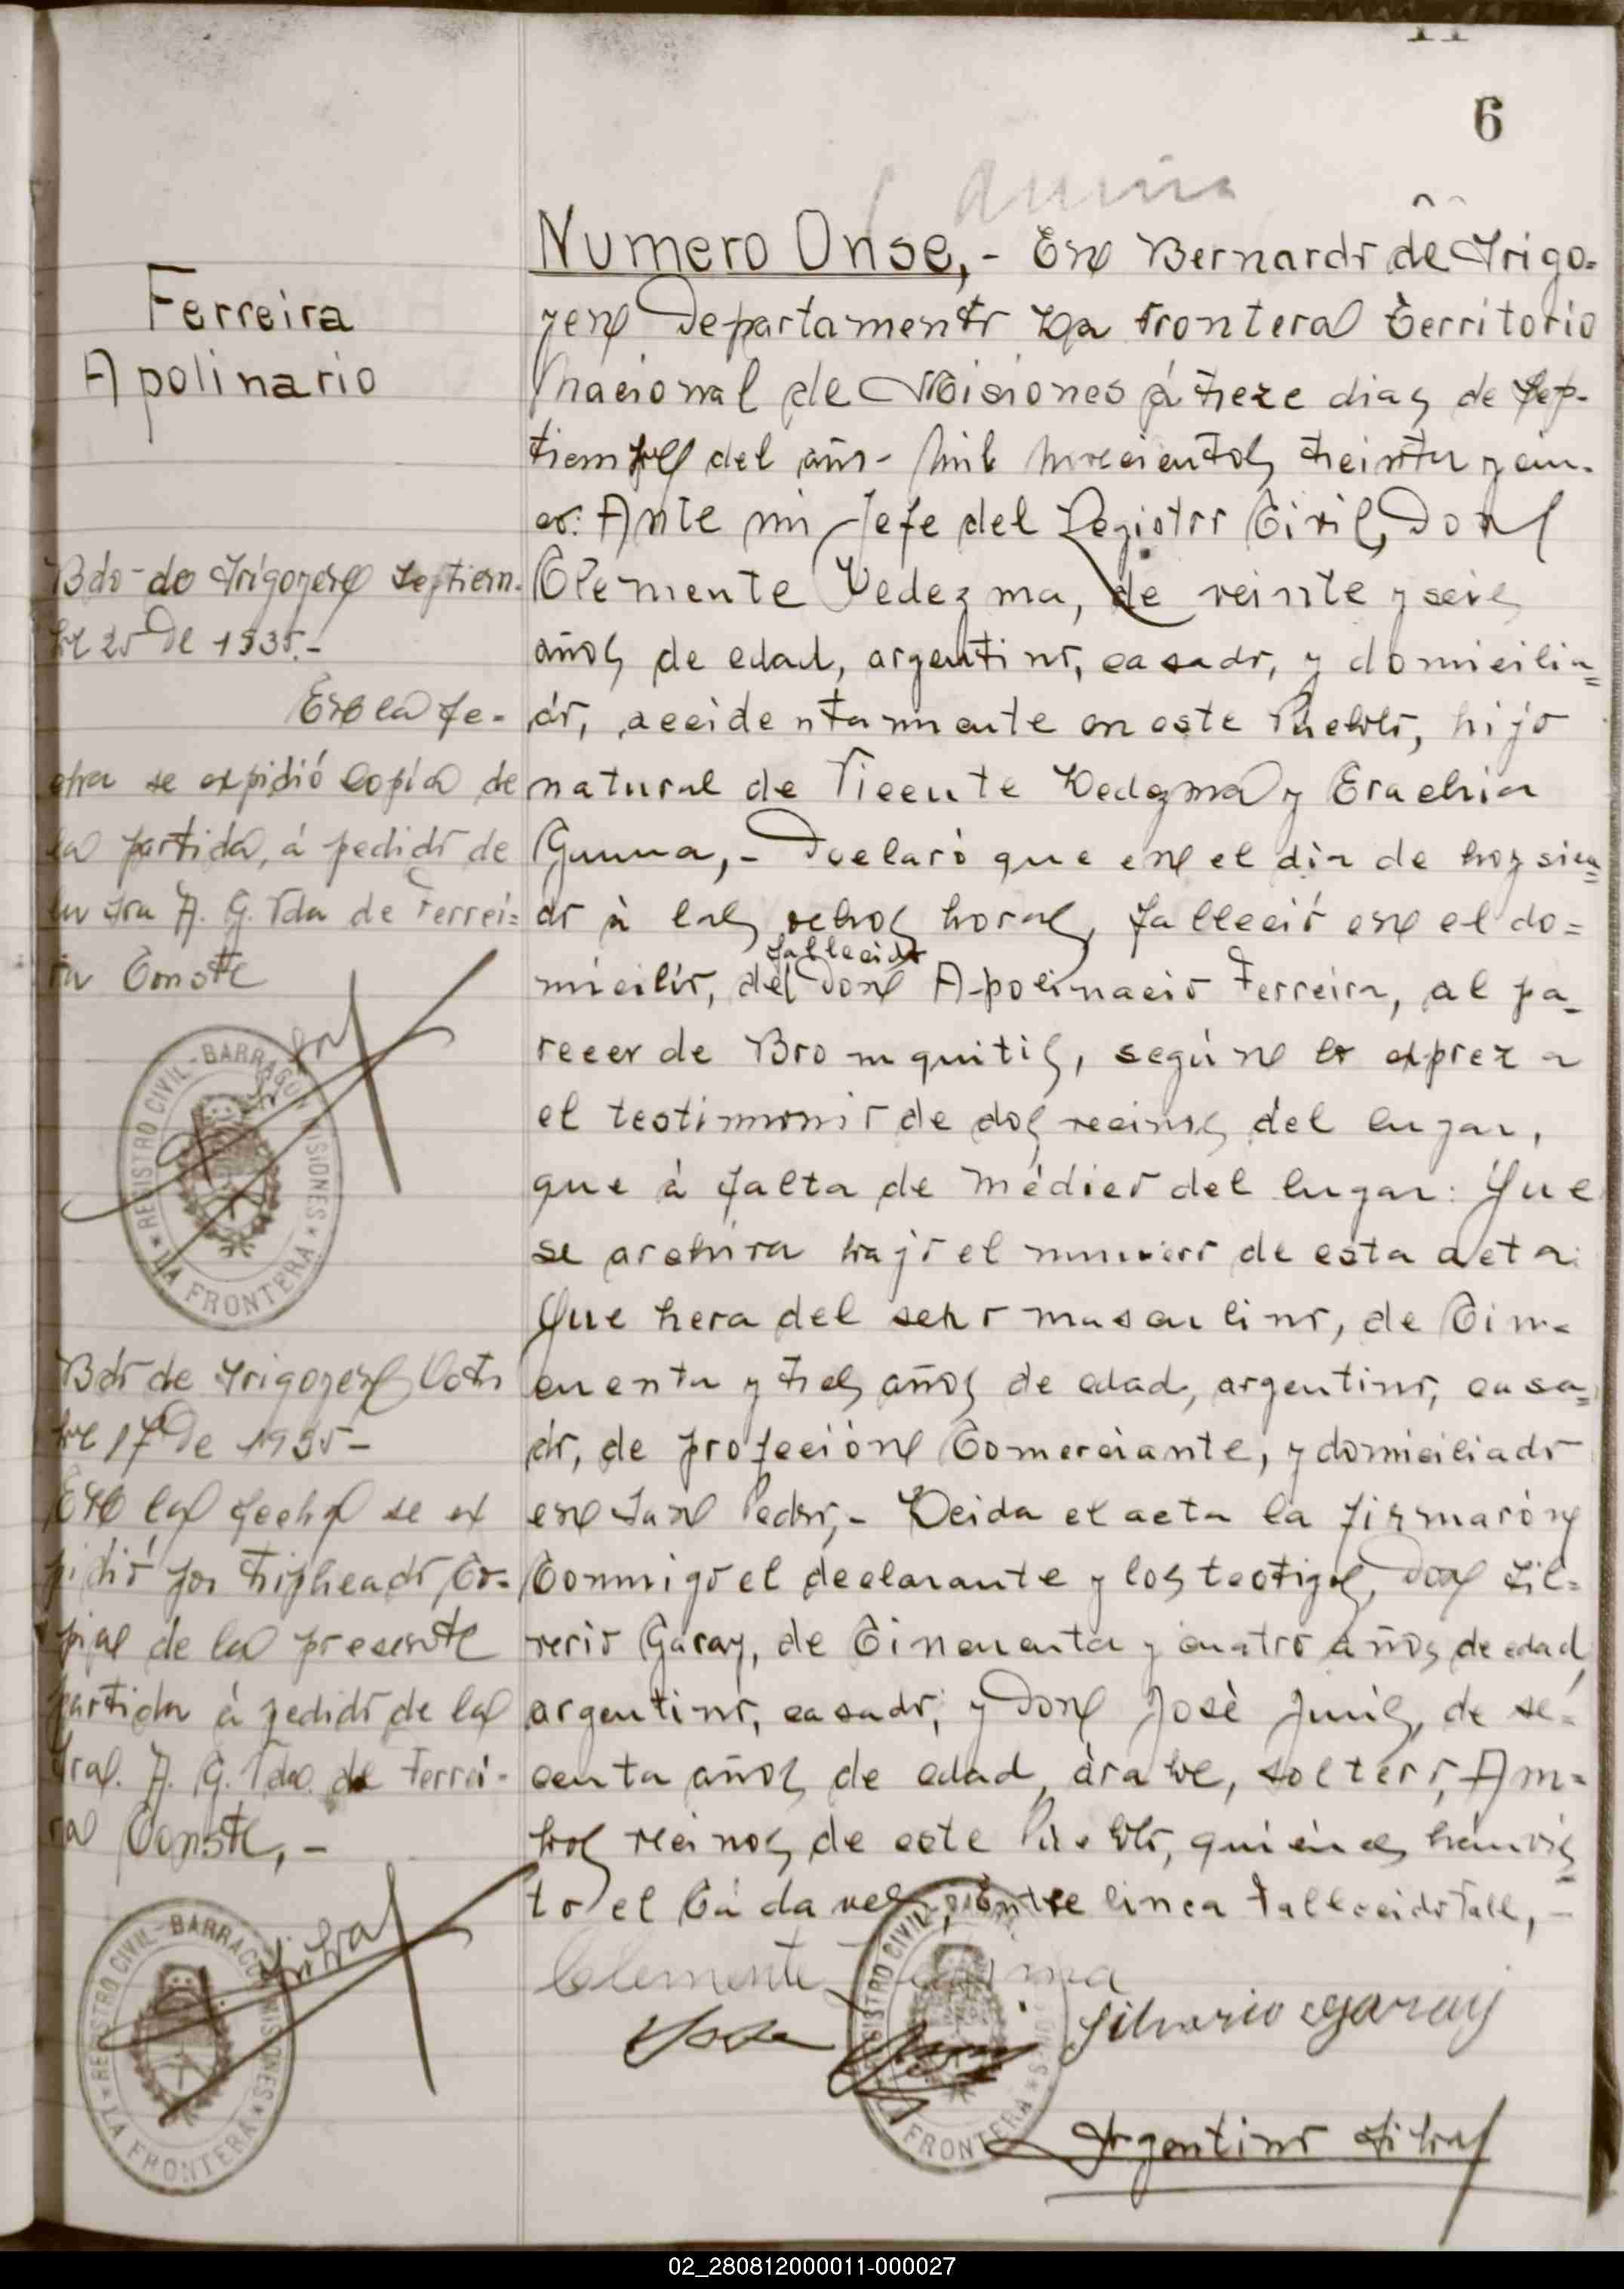 6
Numero Onse,- En Bernardo de Irigo=
yen Departamento La Frontera Territorio
Nacional de Misiones á treze dias de Sep-
tiembre del año- mil novecientos treinta y cin-
co: Ante mi Jefe del Registro Civil, Don
Clemente Ledezma, de veinte y seis
años de edad, argentino, casado, y domicilia=
do, accidentamente en este Pueblo, hijo
natural de Vicente Ledezma y
Declaró que en el dia de hoy sien=
do à las ocho horas, falleció en el do=
fallecido
micilio, del Don Apolinacio Ferreira, al pa-
recer de Bronquitis, según lo espreza
el testimonio de dos vecinos del lugar,
que à falta de médico del lugar: Que
se archiva bajo el numero de esta acta:
Que hera del sexo masculino, de Cin=
cuenta y tres años de edad, argentino, casa=
do, de profeción Comerciante, y domiciliado
en San Pedro,- Leida el acta la firmarón
Conmigo el declarante y los testigos, Don Sil=
verio Garay, de Cincuenta y cuatro años de edad,
argentino, casado, y Don José Juniz, de se=
centa años de edad, àrabe, soltero, Am=
bos vecinos de este Pueblo, quiénes hán vis=
to el Cádaver, entre linea Fallecido Vale,-
Clemente
Jose
Silverio Garay
Argentino Silva
Ferreira
Apolinario
Bdo de Irigoyen Septiem-
bre 25 De 1935.-
En la fe-
cha se expidió Copia de
la partida, á pedido de
la Sra A. G. Vda de Ferrei=
ra Conste
Silva
REGISTRO CIVIL-BARRACON MISIONES
LA FRONTERA
Bdo de Irigoyen Octu
bre 17 De 1935-
En la fecha se ex
pidió por triplicado, Co=
pia de la presente
partida à pedido de la
Sra. A. G. Vda. de Ferrei-
ra Conste,-
Silva
REGISTRO CIVIL-BARRACON MISIONES
LA FRONTERA
REGISTRO CIVIL
FRONTERA
02_280812000011-000027